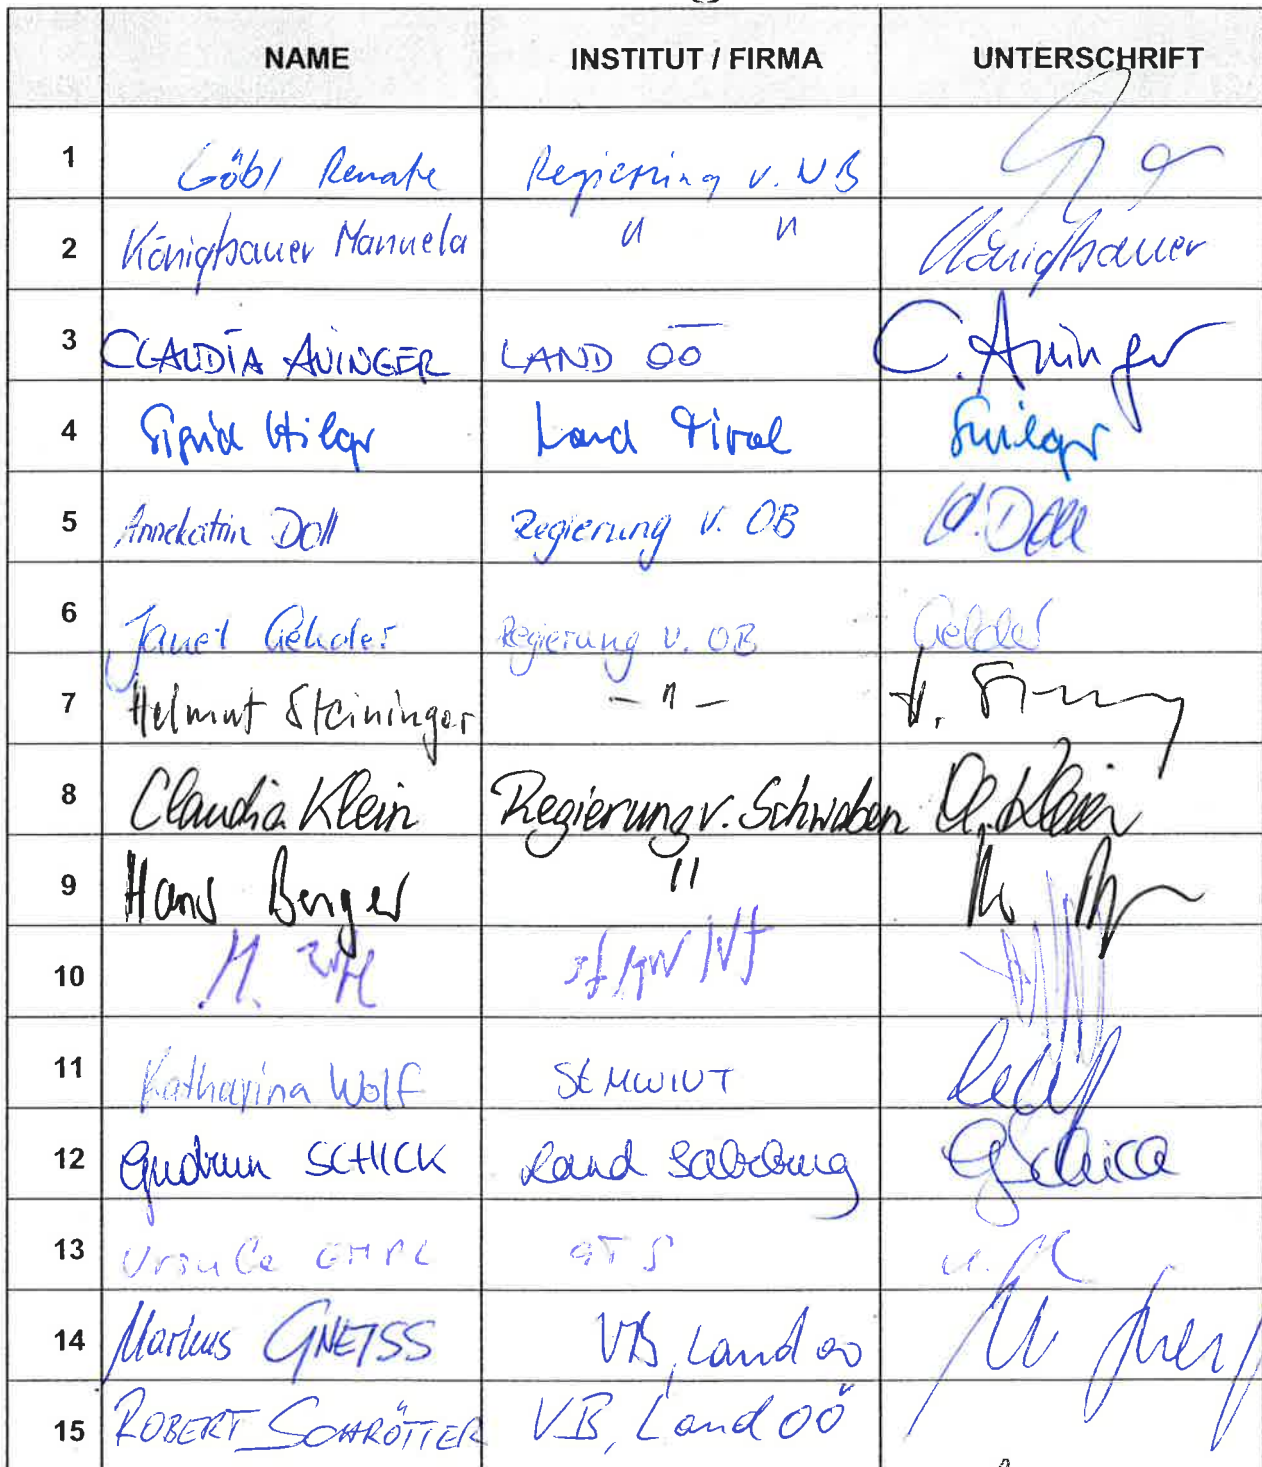 NAME INSTITUT / FIRMA UNTERSCHRIFT
1 Göbl Renate Regierung v. NB
2 Königbauer Manuela " " Königbauer
3 CLAUDIA AVINGER LAND OÖ C. Avinger
4 Sigrid Hilger Land Tirol
5 Annekatrin Doll Regierung v. OB A. Doll
6 Janet Regierung v. OB
7 Helmut Steininger - " -
8 Claudia Klein Regierung v. Schwaben Cl. Klein
9 Hans Berger "
10 M.
11 Katharina Wolf StMWIVT
12 Gudrun SCHICK Land Salzburg GSchick
13 Ursula
14 Markus GNEISS VB, Land OÖ
15 ROBERT SCHRÖTTER VB, Land OÖ